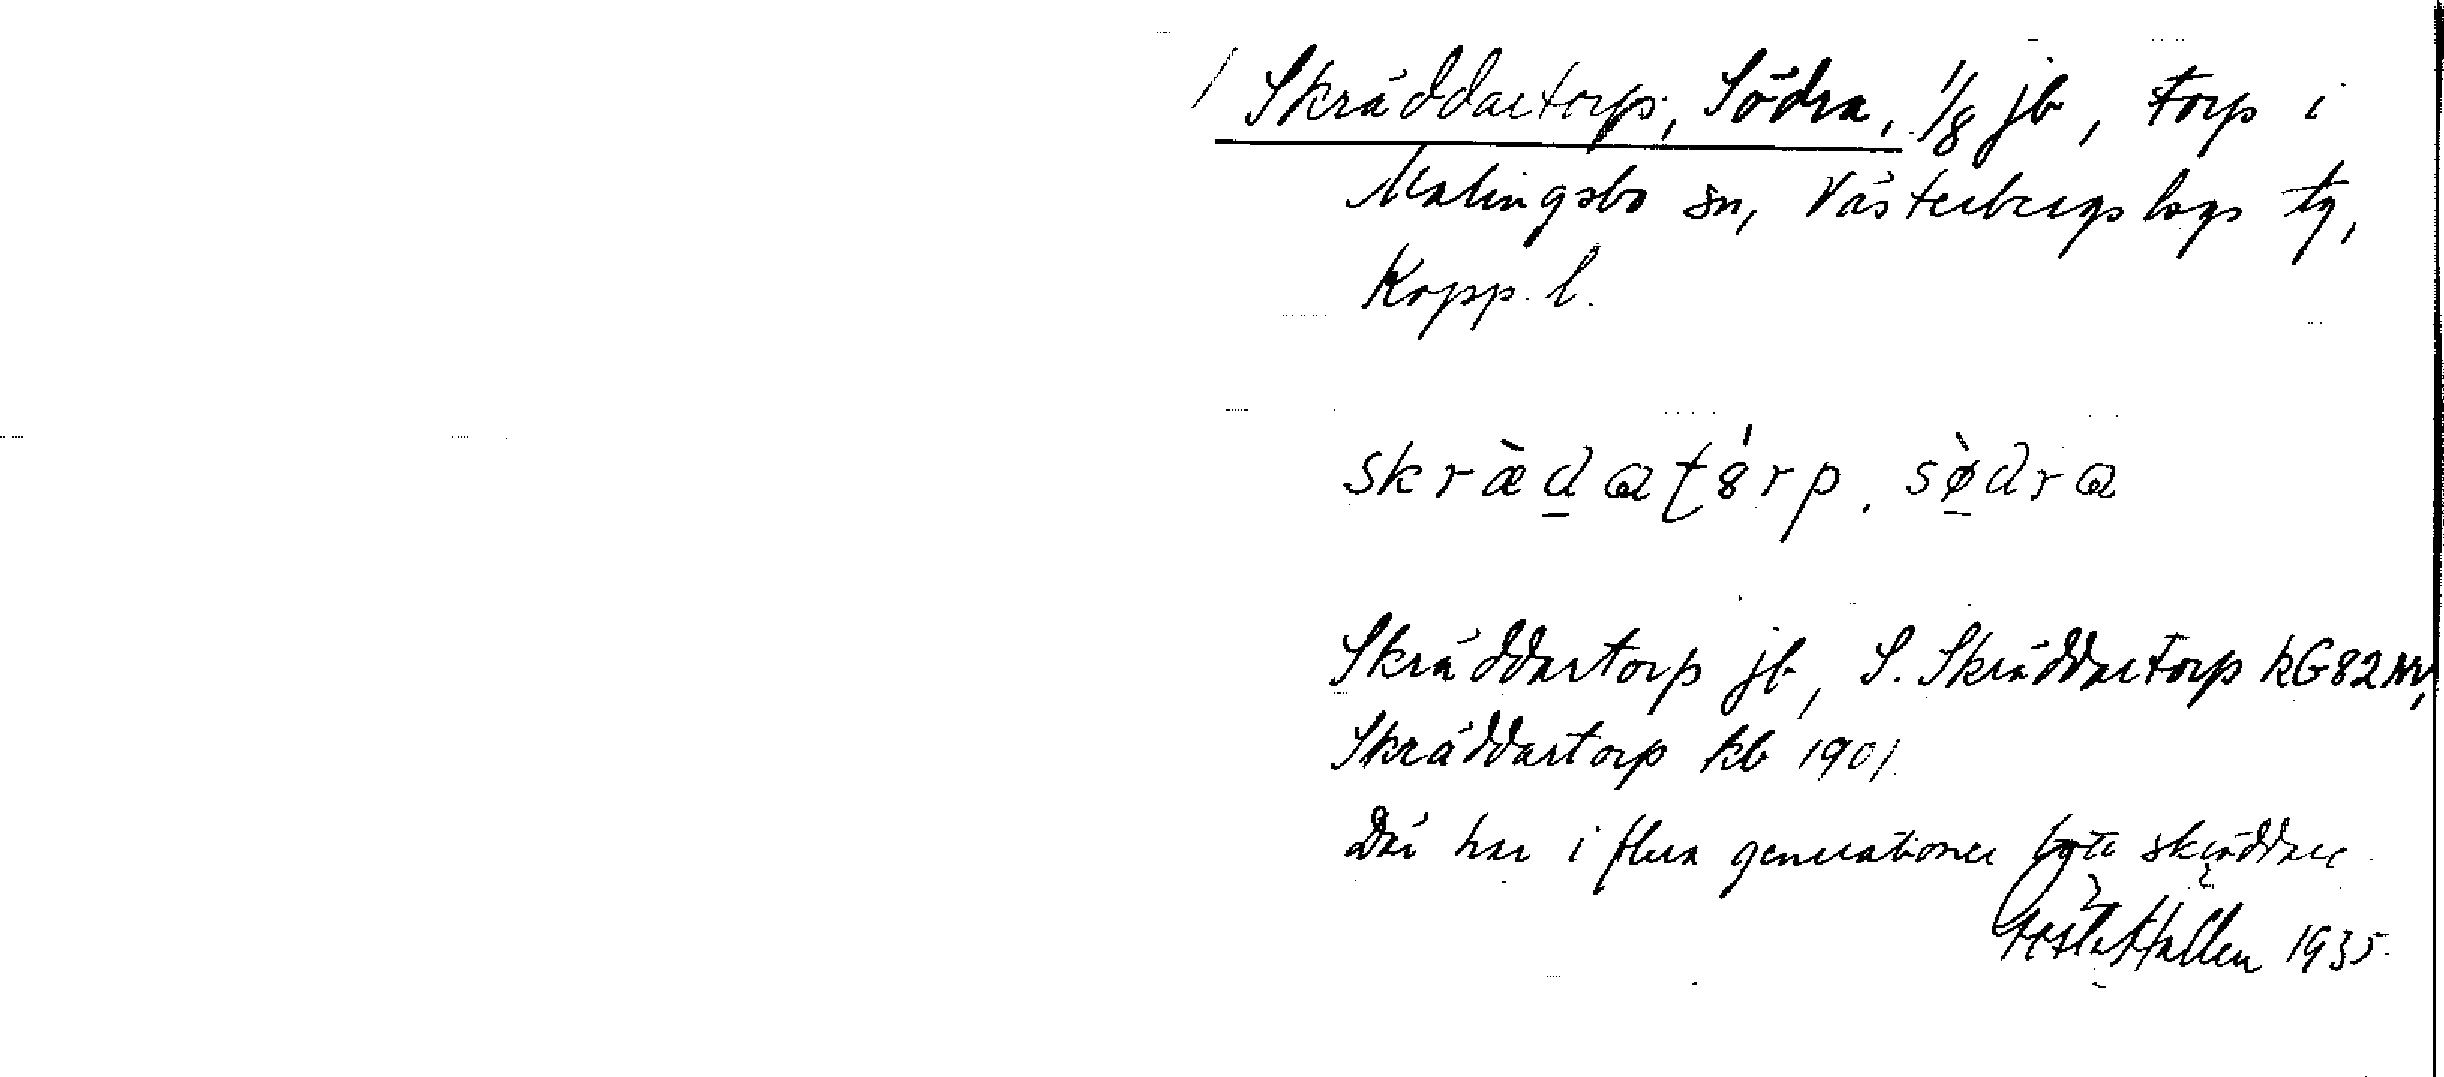 / Skräddartorp, Södra, 1/8 jb, torp i
Malingsbo sn, Västerbergslags tg,
Kopp. l.
skræ̀da ʈ8́rp. sø̀dra
Skräddartorp jb, S. Skräddartorp kG82NV,
Skräddartorp kb 1901.
Där har i flera generationer bott skräddare.
Gösta Hallen 1935.